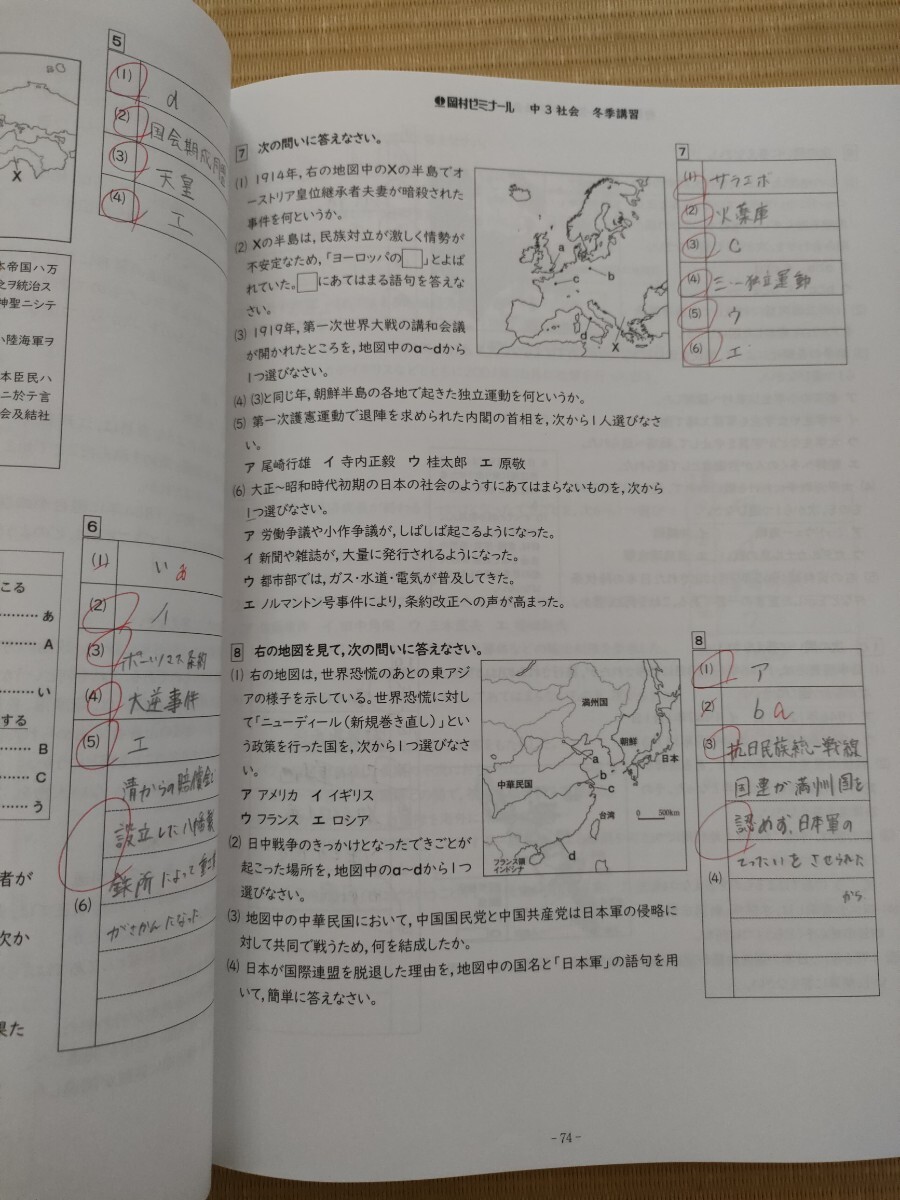 5
(1) a
(2) 国会期成同盟
(3) 天皇
(4) エ
X
本帝国ハ万
之ヲ統治ス
神聖ニシテ
ハ陸海軍ヲ
本臣民ハ
ニ於テ言
会及結社
6
(1) い あ
(2) イ
(3) ポーツマス条約
(4) 大逆事件
(5) エ
(6) 清からの賠償金で
設立した八幡製
鉄所によって重工業
がさかんになった
こる
あ
A
い
する
B
C
う
者が
次か
果た
岡村ゼミナール 中3社会 冬季講習
7 次の問いに答えなさい。
(1) 1914年，右の地図中のXの半島でオ
ーストリア皇位継承者夫妻が暗殺された
事件を何というか。
(2) Xの半島は，民族対立が激しく情勢が
不安定なため，「ヨーロッパの□」とよば
れていた。□にあてはまる語句を答えな
さい。
(3) 1919年，第一次世界大戦の講和会議
が開かれたところを，地図中のa～dから
1つ選びなさい。
(4) (3)と同じ年，朝鮮半島の各地で起きた独立運動を何というか。
(5) 第一次護憲運動で退陣を求められた内閣の首相を，次から1人選びなさ
い。
ア 尾崎行雄 イ 寺内正毅 ウ 桂太郎 エ 原敬
(6) 大正～昭和時代初期の日本の社会のようすにあてはまらないものを，次から
1つ選びなさい。
ア 労働争議や小作争議が，しばしば起こるようになった。
イ 新聞や雑誌が，大量に発行されるようになった。
ウ 都市部では，ガス・水道・電気が普及してきた。
エ ノルマントン号事件により，条約改正への声が高まった。
a
b
c
d
X
7
(1) サラエボ
(2) 火薬庫
(3) C
(4) 三・一独立運動
(5) ウ
(6) エ
8 右の地図を見て，次の問いに答えなさい。
(1) 右の地図は，世界恐慌のあとの東アジ
アの様子を示している。世界恐慌に対し
て「ニューディール（新規巻き直し）」とい
う政策を行った国を，次から1つ選びなさ
い。
ア アメリカ イ イギリス
ウ フランス エ ロシア
(2) 日中戦争のきっかけとなったできごとが
起こった場所を，地図中のa～dから1つ
選びなさい。
(3) 地図中の中華民国において，中国国民党と中国共産党は日本軍の侵略に
対して共同で戦うため，何を結成したか。
(4) 日本が国際連盟を脱退した理由を，地図中の国名と「日本軍」の語句を用
いて，簡単に答えなさい。
満州国
朝鮮
日本
a
b
c
中華民国
台湾
0 500km
d
フランス領
インドシナ
8
(1) ア
(2) b a
(3) 抗日民族統一戦線
(4) 国連が満州国を
認めず、日本軍の
てったいをさせられた
から
- 74 -